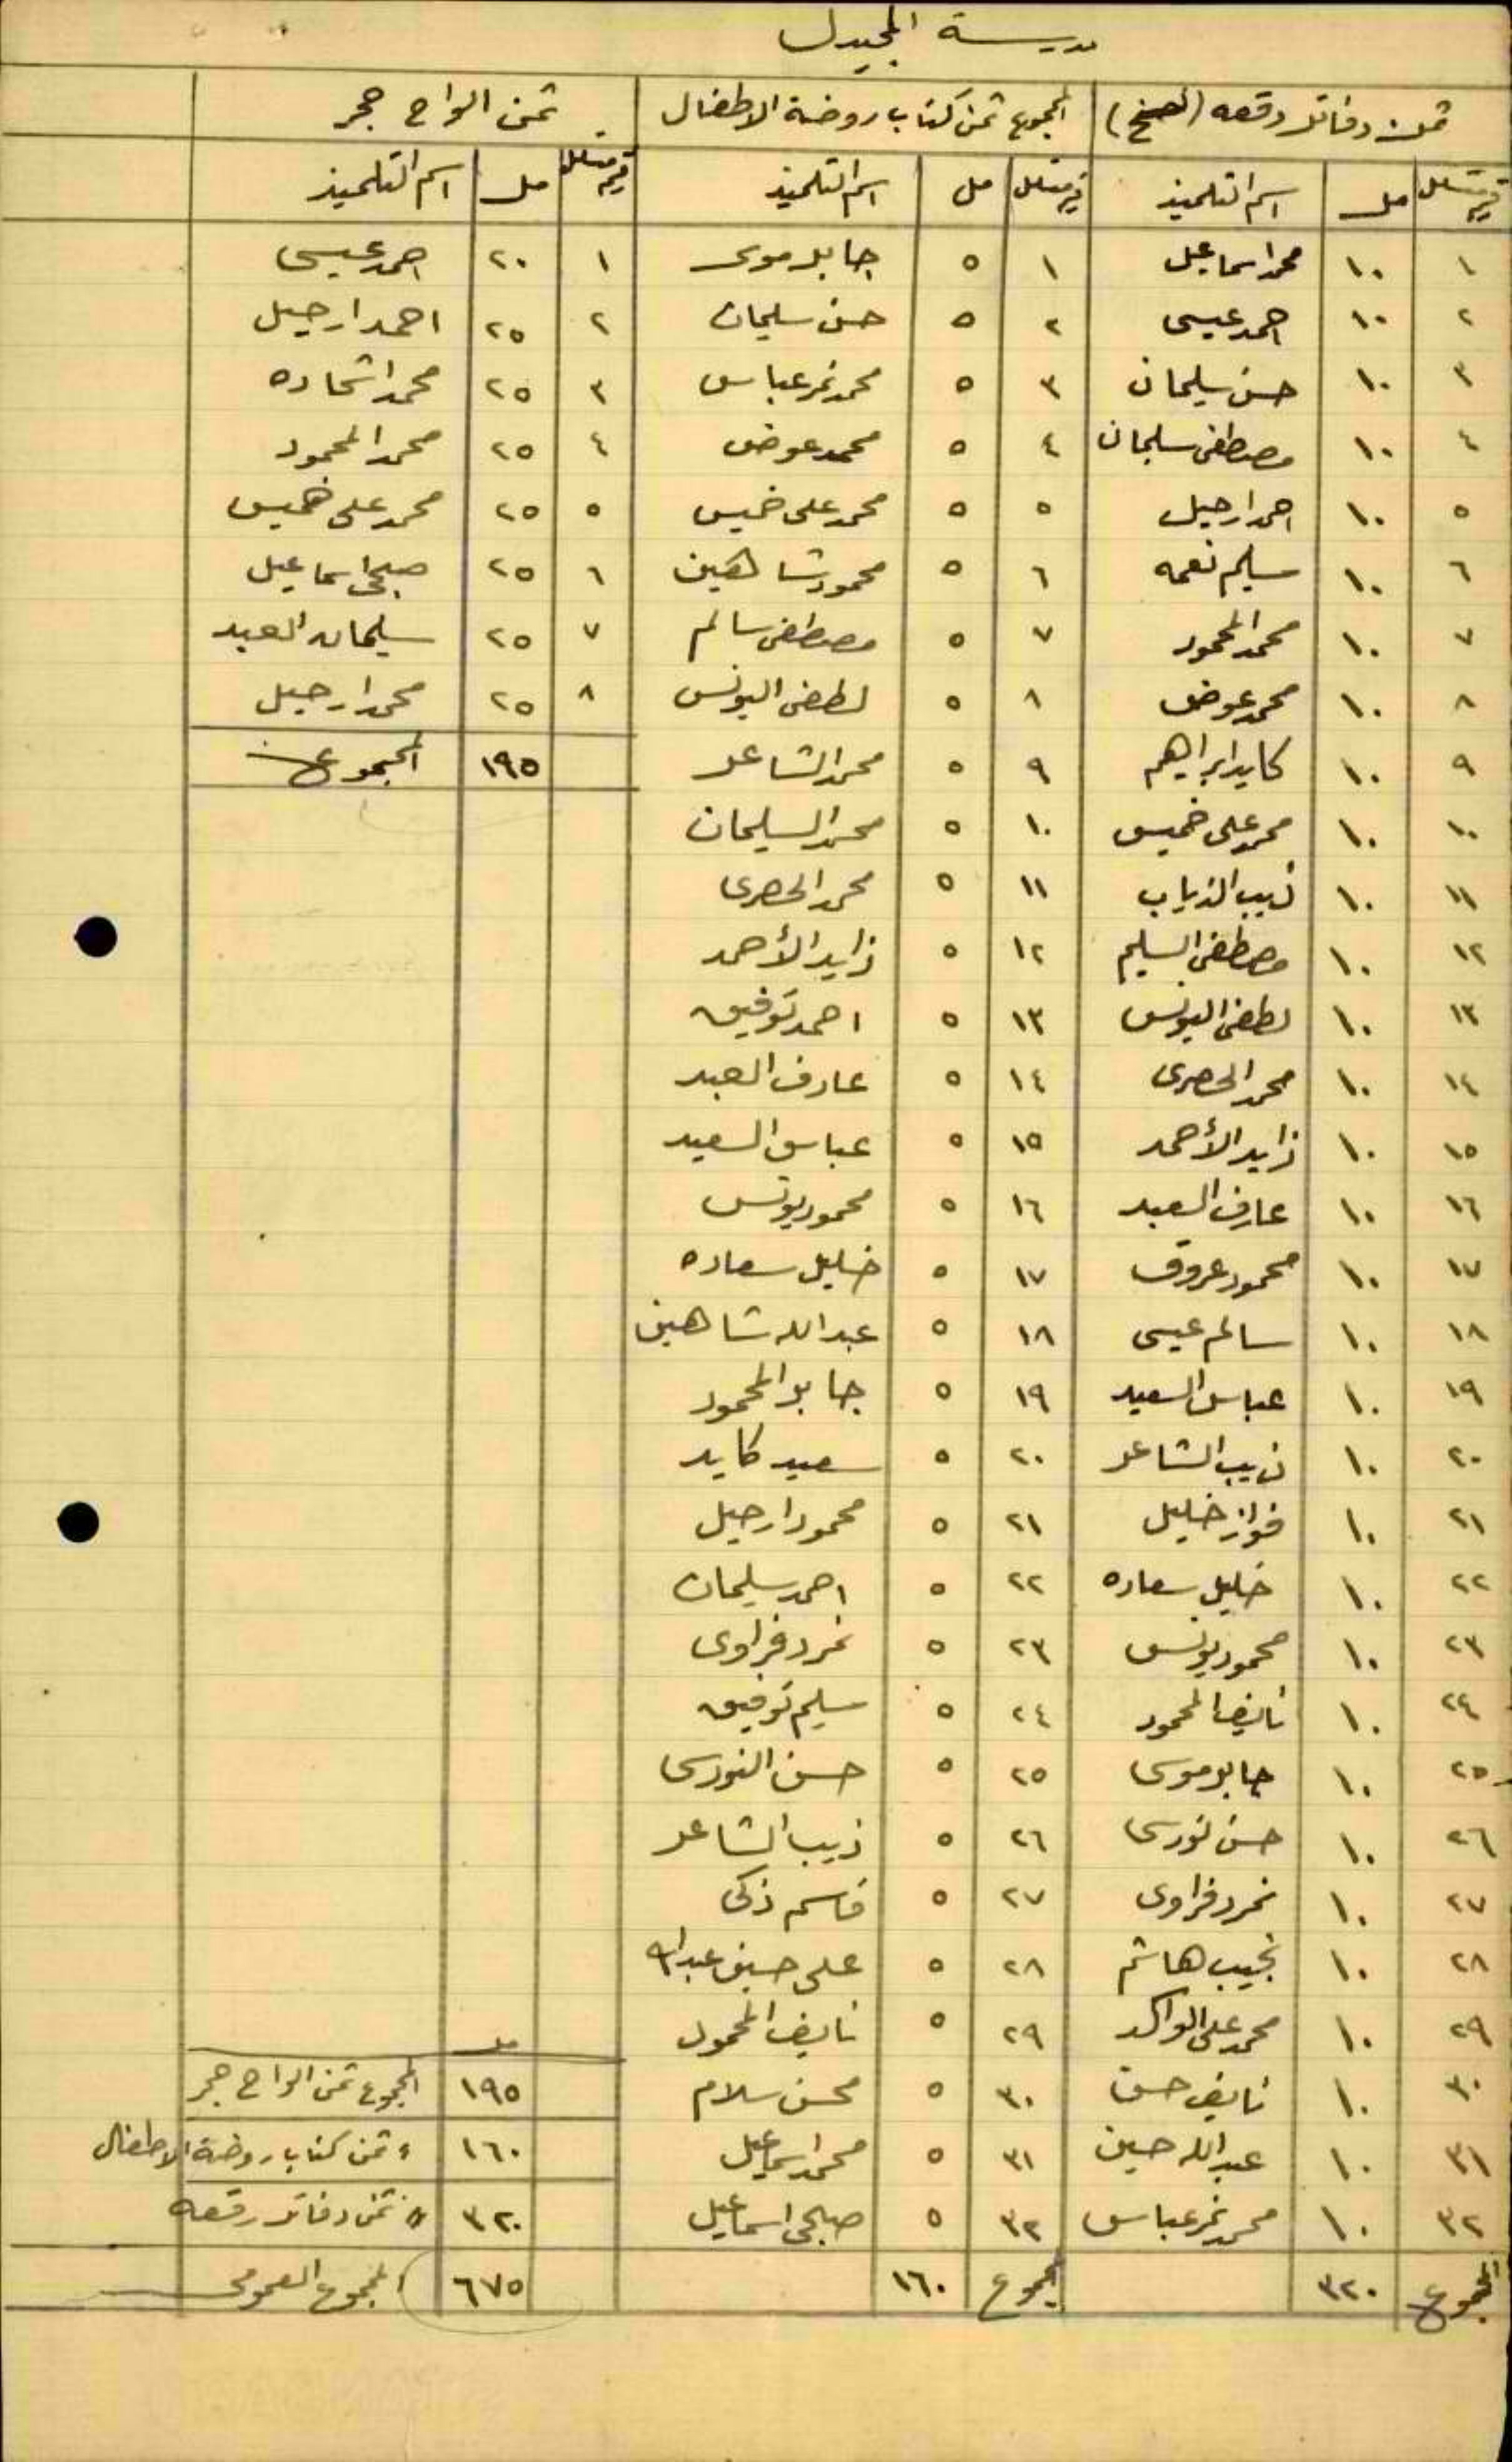 مدرسة المجيدل
ثمن دفاتر رقعه (نسخ) | المجموع ثمن كتاب روضة الاطفال | ثمن الواح حجر
رقم متسلسل | مل | اسم التلميذ | رقم متسلسل | مل | اسم التلميذ | رقم متسلسل | مل | اسم التلميذ
١ | ١٠ | محمد اسماعيل | ١ | ٥ | جابر موسى | ١ | ٢٠ | احمد عيسى
٢ | ١٠ | احمد عيسى | ٢ | ٥ | حسن سليمان | ٢ | ٢٥ | احمد ارحيل
٣ | ١٠ | حسن سليمان | ٣ | ٥ | محمد نمر عباس | ٣ | ٢٥ | محمد اشحاده
٤ | ١٠ | مصطفى سليمان | ٤ | ٥ | محمد عوض | ٤ | ٢٥ | محمد المحمود
٥ | ١٠ | احمد ارحيل | ٥ | ٥ | محمد على خميس | ٥ | ٢٥ | محمد على خميس
٦ | ١٠ | سليم نعمه | ٦ | ٥ | محمود شاهين | ٦ | ٢٥ | صبحى اسماعيل
٧ | ١٠ | محمد المحمود | ٧ | ٥ | مصطفى سالم | ٧ | ٢٥ | سليمان العبد
٨ | ١٠ | محمد عوض | ٨ | ٥ | لطفى اليونس | ٨ | ٢٥ | محمد ارحيل
٩ | ١٠ | كايد ابراهيم | ٩ | ٥ | محمد الشاعر | ١٩٥ | المجموع
١٠ | ١٠ | محمد على خميس | ١٠ | ٥ | محمد السليمان
١١ | ١٠ | ذيب الذياب | ١١ | ٥ | محمد الحصرى
١٢ | ١٠ | مصطفى السليم | ١٢ | ٥ | زايد الأحمد
١٣ | ١٠ | لطفى اليونس | ١٣ | ٥ | احمد توفيق
١٤ | ١٠ | محمد الحصرى | ١٤ | ٥ | عارف العبد
١٥ | ١٠ | زايد الأحمد | ١٥ | ٥ | عباس السعيد
١٦ | ١٠ | عارف العبد | ١٦ | ٥ | محمود يونس
١٧ | ١٠ | محمود عروق | ١٧ | ٥ | خليل سعاده
١٨ | ١٠ | سالم عيسى | ١٨ | ٥ | عبد الله شاهين
١٩ | ١٠ | عباس السعيد | ١٩ | ٥ | جابر المحمود
٢٠ | ١٠ | ذيب الشاعر | ٢٠ | ٥ | سعيد كايد
٢١ | ١٠ | فواز خليل | ٢١ | ٥ | محمود ارحيل
٢٢ | ١٠ | خليل سعاده | ٢٢ | ٥ | احمد سليمان
٢٣ | ١٠ | محمود يونس | ٢٣ | ٥ | نمر دفراوى
٢٤ | ١٠ | نايف المحمود | ٢٤ | ٥ | سليم توفيق
٢٥ | ١٠ | جابر موسى | ٢٥ | ٥ | حسن النورسى
٢٦ | ١٠ | حسن نورسى | ٢٦ | ٥ | ذيب الشاعر
٢٧ | ١٠ | نمر دفراوى | ٢٧ | ٥ | قاسم ذكى
٢٨ | ١٠ | نجيب هاشم | ٢٨ | ٥ | على حسين عبد الله
٢٩ | ١٠ | محمد على الواكد | ٢٩ | ٥ | نايف المحمود | مل
٣٠ | ١٠ | نايف حسن | ٣٠ | ٥ | محسن سلام | ١٩٥ | المجموع ثمن الواح حجر
٣١ | ١٠ | عبد الله حسين | ٣١ | ٥ | محمد اسماعيل | ١٦٠ | " ثمن كتاب روضة الاطفال
٣٢ | ١٠ | محمد نمر عباس | ٣٢ | ٥ | صبحى اسماعيل | ٣٢٠ | " ثمن دفاتر رقعه
المجموع | ٣٢٠ | المجموع | ١٦٠ | ٦٧٥ | المجموع العمومى